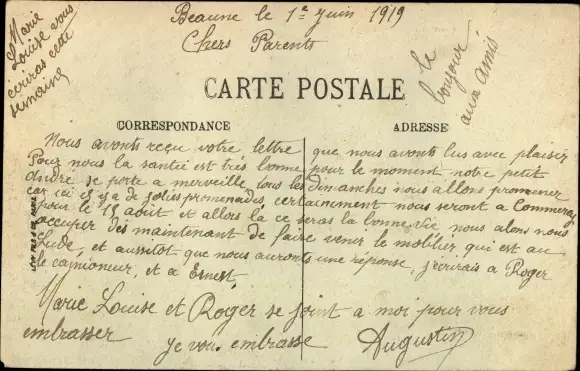 Beaune le 1er juin 1919
Chers Parents
Marie
Louise vous
ecriras cette
semaine
le
bonjour
aux amis
CARTE POSTALE
CORRESPONDANCE
ADRESSE
Nous avons reçu votre lettre que nous avont lus avec plaisir
Pour nous la santée est très bonne pour le moment notre petit
André se porte a merveille tous les Dimanches nous allons promener
car ici il y a de jolies promenades, certainement nous seront a Commenay
pour le 15 août et allors la ce seras la bonne vie nous alons nous
occuper des maintenant de faire venir le mobilier qui est au
et aussitot que nous auronts une réponse, j'ecirais a Roger
le camioneur, et a Ernest,
Marie Louise et Roger se joint a moi pour vous
embrasser je vous embrasse Augustin